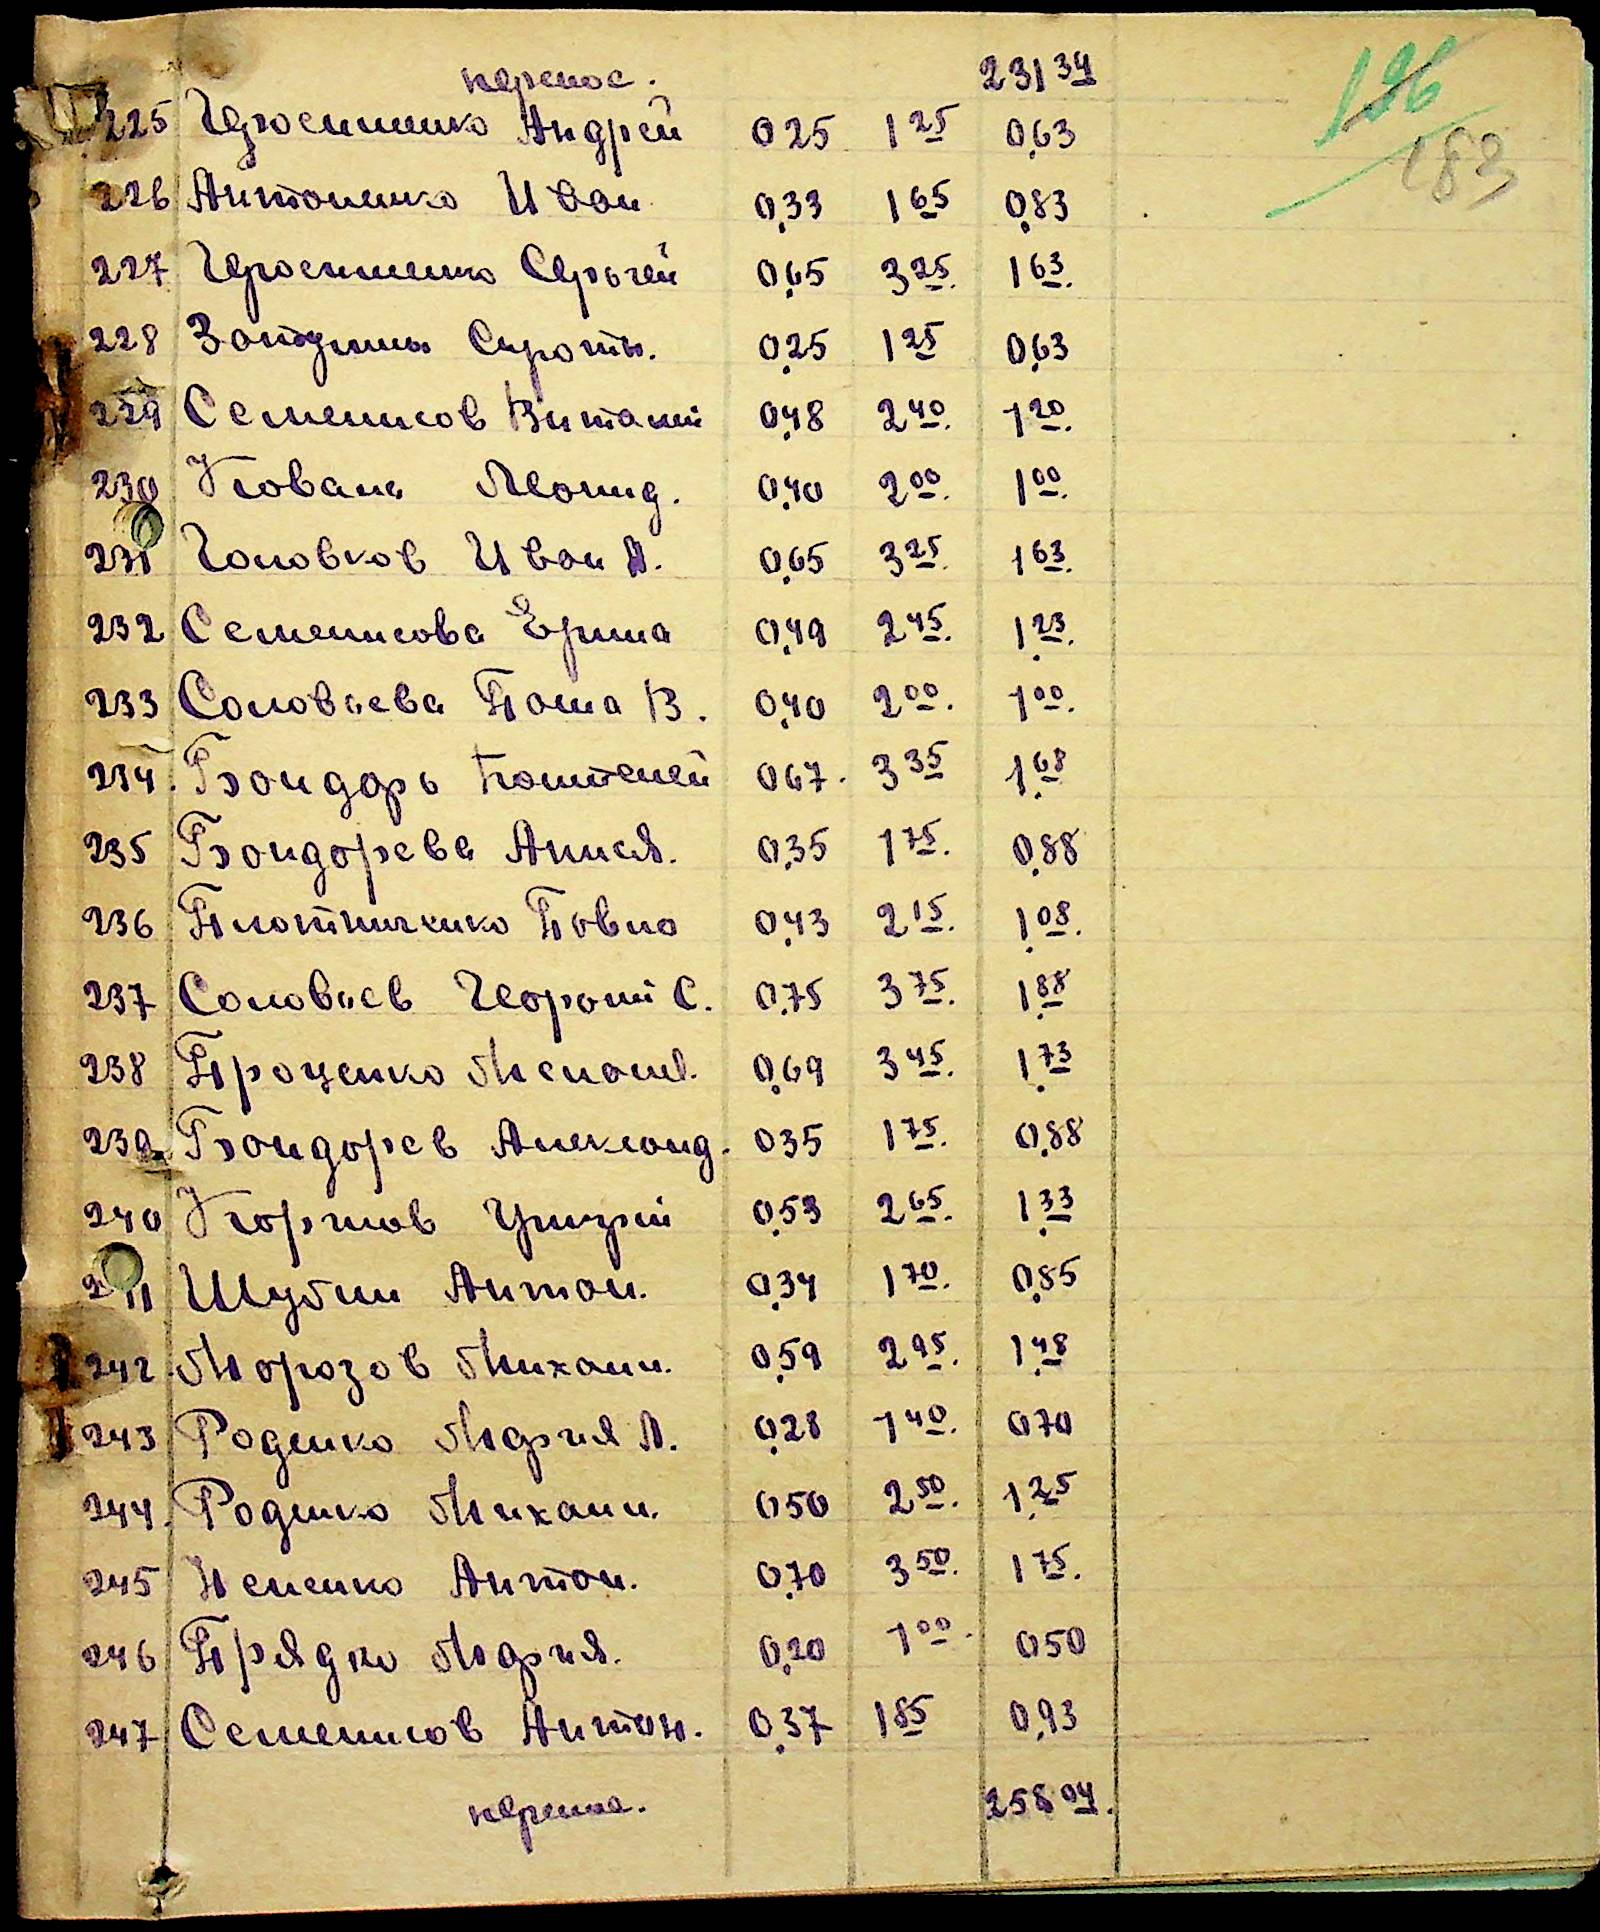 перенос. 231 34
126
183
225 Герасименко Андрей 0 25 1 25 0,63
226 Антоненко Иван 0,33 1 65 0,83
227 Герасименко Сергей 0,65 3 25. 1 63.
228 Сироты. 0,25 1 25 0,63
229 Семенисов Виталий 0,48 2 40. 1 20.
230 Леонид. 0,40 2 00. 1 00.
231 Головков Иван А. 0,65 3 25. 1 63.
232 Семенисова Ерина 0,49 2 45. 1 23.
233 Соловьева Паша В. 0,40 2 00. 1 00.
234. Бондарь Пантелей 0 67. 3 35 1 68
235 Бондарева Анися. 0,35 1 75. 0,88
236 Плотниченко Павло 0,43 2 15. 1 08.
237 Соловьев Георгий С. 0,75 3 75. 1 88
238 Проценко 0,69 3 45. 1 73
239 Бондарев Александ. 0 35 1 75. 0,88
240 0,53 2 65. 1 33
241 Шубин Антон. 0,34 1 70. 0,85
242. Морозов Михаил. 0,59 2 95. 1 48
243 Роденко Мария А. 0,28 1 40. 0 70
244. Роденко Михаил. 0 50 2 50. 1 25
245 Антон. 0,70 3 50. 1 75.
246 Прядко Мария. 0,20 1 00. 0 50
247 Семенисов Антон. 0,37 1 85 0,93
перенос. 258 04.